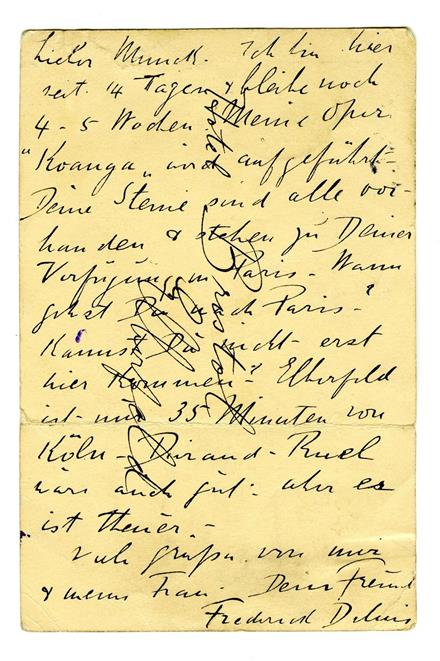 Lieber Munch. Ich bin hier
seit 14 Tagen & bleibe noch
4-5 Wochen. Meine Oper
"Koanga" wird aufgeführt -
Deine Steine sind alle vor-
handen & stehen zu Deiner
Verfügung in Paris - Wann
gehst Du nach Paris - ?
Kannst Du nicht erst
hier kommen - ? Elberfeld
ist nur 35 Minuten von
Köln - Durand-Ruel
wäre auch gut - aber es
ist theuer. -
Viele Grüsse von mir
& meine Frau - Dein Freund
Frederick Delius
Hotel Bristol
Elberfeld